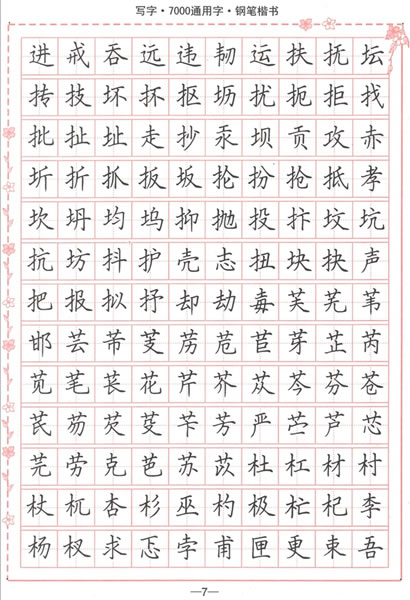 写字·7000通用字·钢笔楷书
进戒吞远违韧运扶抚坛
抟技坏抔抠坜扰扼拒找
批扯址走抄汞坝贡攻赤
圻折抓扳坂抡扮抢抵孝
坎坍均坞抑抛投抃坟坑
抗坊抖护壳志扭块抉声
把报拟抒却劫毐芙芜苇
邯芸芾芰苈苊苣芽芷芮
苋芼苌花芹芥苁芩芬苍
芪芴芡芟苄芳严苎芦芯
芫劳克芭苏苡杜杠材村
杖杌杏杉巫杓极杧杞李
杨杈求忑孛甫匣更束吾
—7—